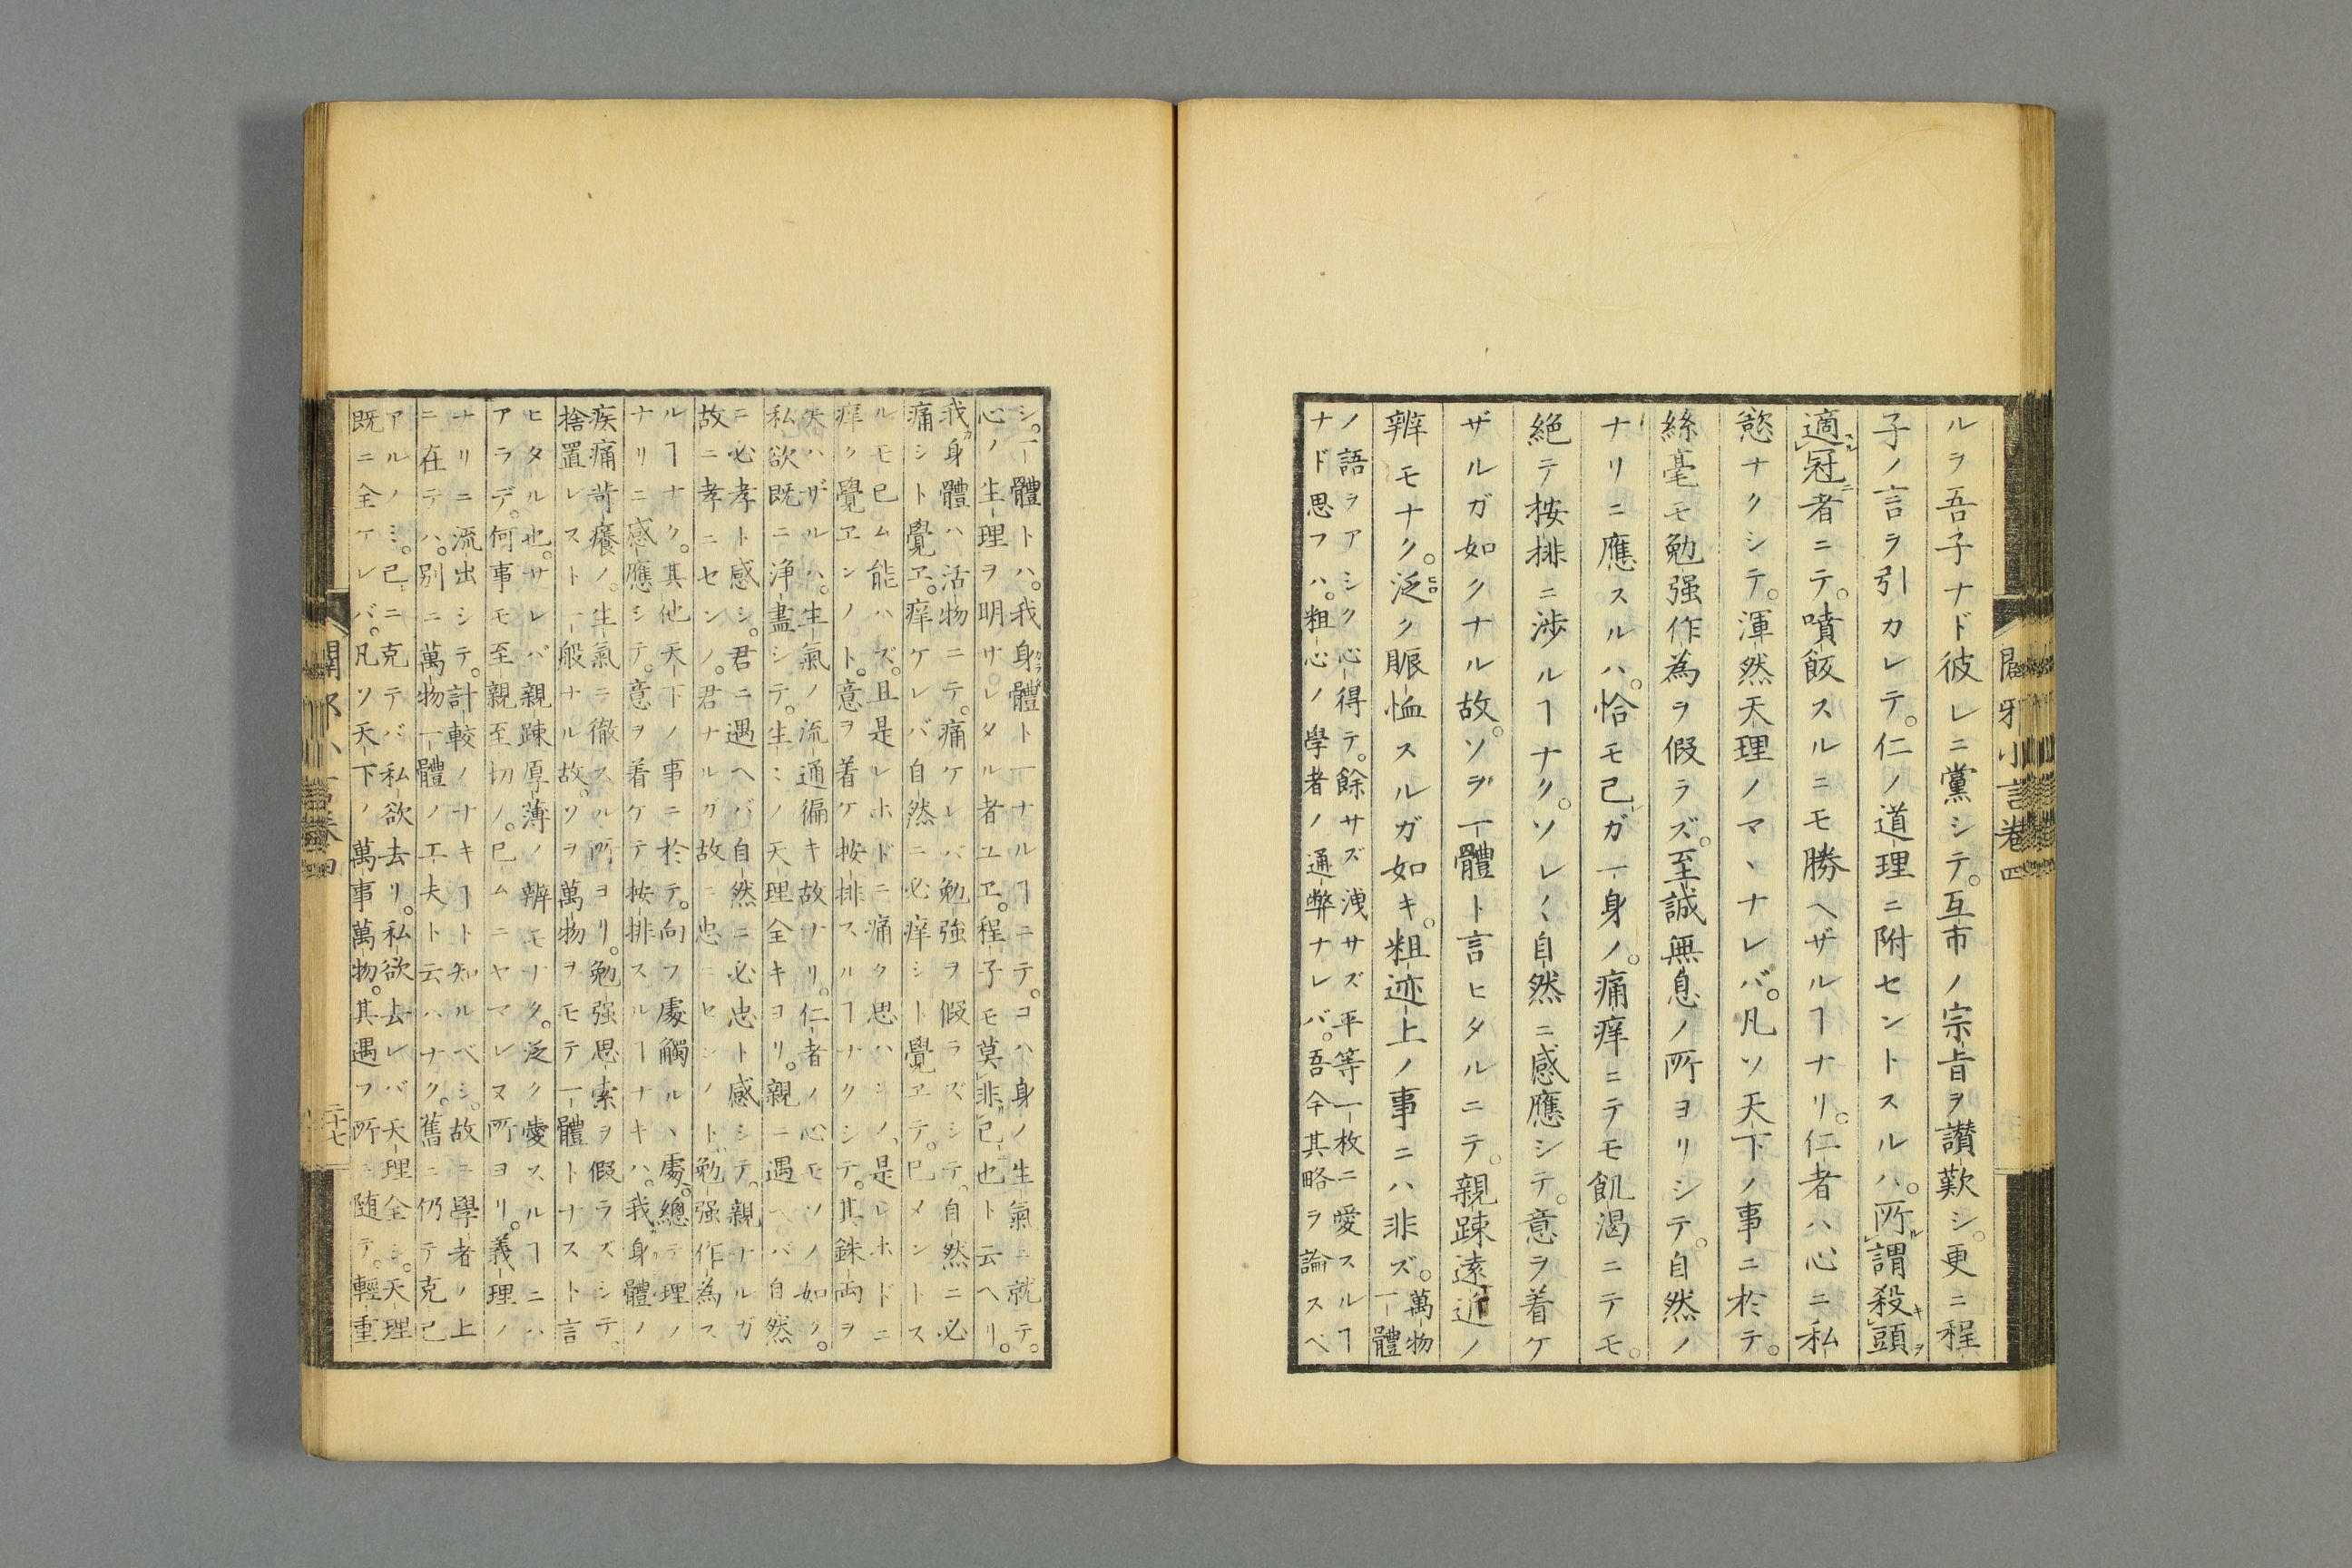 闢邪小言卷四
ルヲ吾子ナド彼レニ黨シテ。互市ノ宗旨ヲ讃歎シ。更ニ程
子ノ言ヲ引カレテ。仁ノ道理ニ附セントスルハ。所謂殺頭
適冠者ニテ。噴飯スルニモ勝ヘザルヿナリ。仁者ハ心ニ私
慾ナクシテ。渾然天理ノマヽナレバ。凡ソ天下ノ事ニ於テ。
絲毫モ勉强作為ヲ假ラズ。至誠無息ノ所ヨリシテ。自然ノ
ナリニ應スルハ。恰モ己ガ一身ノ。痛痒ニテモ飢渇ニテモ。
絶テ按排ニ渉ルヿナク。ソレ〱自然ニ感應シテ。意ヲ着ケ
ザルガ如クナル故。ソヲ一體ト言ヒタルニテ。親踈遠近ノ
辨モナク。泛ク賑恤スルガ如キ。粗迹上ノ事ニハ非ズ。萬物
一體
ノ語ヲアシク心得テ。餘サズ洩サズ平等一枚ニ愛スルヿ
ナド思フハ。粗心ノ學者ノ通弊ナレバ。吾今其略ヲ論スベ
シ。一體トハ。我身體ト一ナルヿニテ。コハ身ノ生氣ニ就テ。
心ノ生理ヲ明サレタル者ユヱ。程子モ莫非己也ト云ヘリ。
我身體ハ活物ニテ。痛ケレバ勉強ヲ假ラズシテ。自然ニ必
痛シト覺ヱ。痒ケレバ自然ニ必痒シト覺ヱテ。已メントス
ルモ已ム能ハズ。且是レホドニ痛ク思ハシノ、是レホドニ
痒ク覺ヱンノト。意ヲ着ケ按排スルヿナクシテ。其銖両ヲ
失ハザルハ。生氣ノ流通徧キ故ナリ。仁者ノ心モソノ如ク。
私欲既ニ浄盡シテ。生〻ノ天理全キヨリ。親ニ遇ヘバ自然
ニ必孝ト感シ。君ニ遇ヘバ自然ニ必忠ト感シテ。親ナルガ
故ニ孝ニセンノ。君ナルガ故ニ忠ニセンノト。勉强作為ス
ルヿナク。其他天下ノ事ニ於テ。向フ處觸ルヽ處。總テ理ノ
ナリニ感應シテ。意ヲ着ケテ按排スルヿナキハ。我身體ノ
疾痛苛癢ノ。生氣ニ徹スル所ヨリ。勉强思索ヲ假ラズシテ。
捨置レスト一般ナル故。ソヲ萬物ヲモテ一體トナスト言
ヒタル也。サレバ親踈厚薄ノ辨モナク。泛ク愛スルヿニハ
アラデ。何事モ至親至切ノ。已ムニヤマレヌ所ヨリ。義理ノ
ナリニ流出シテ。計較ノナキヿト知ルベシ。故ニ學者ノ上
ニ在テハ。別ニ萬物一體ノ工夫ト云ハナク。舊ニ仍テ克己
アルノミ。己ニ克テバ私欲去リ。私欲去レバ天理全シ。天理
既ニ全ケレバ。凡ソ天下ノ萬事萬物。其遇フ所ニ随テ。輕重
闢邪小言卷四
二十七